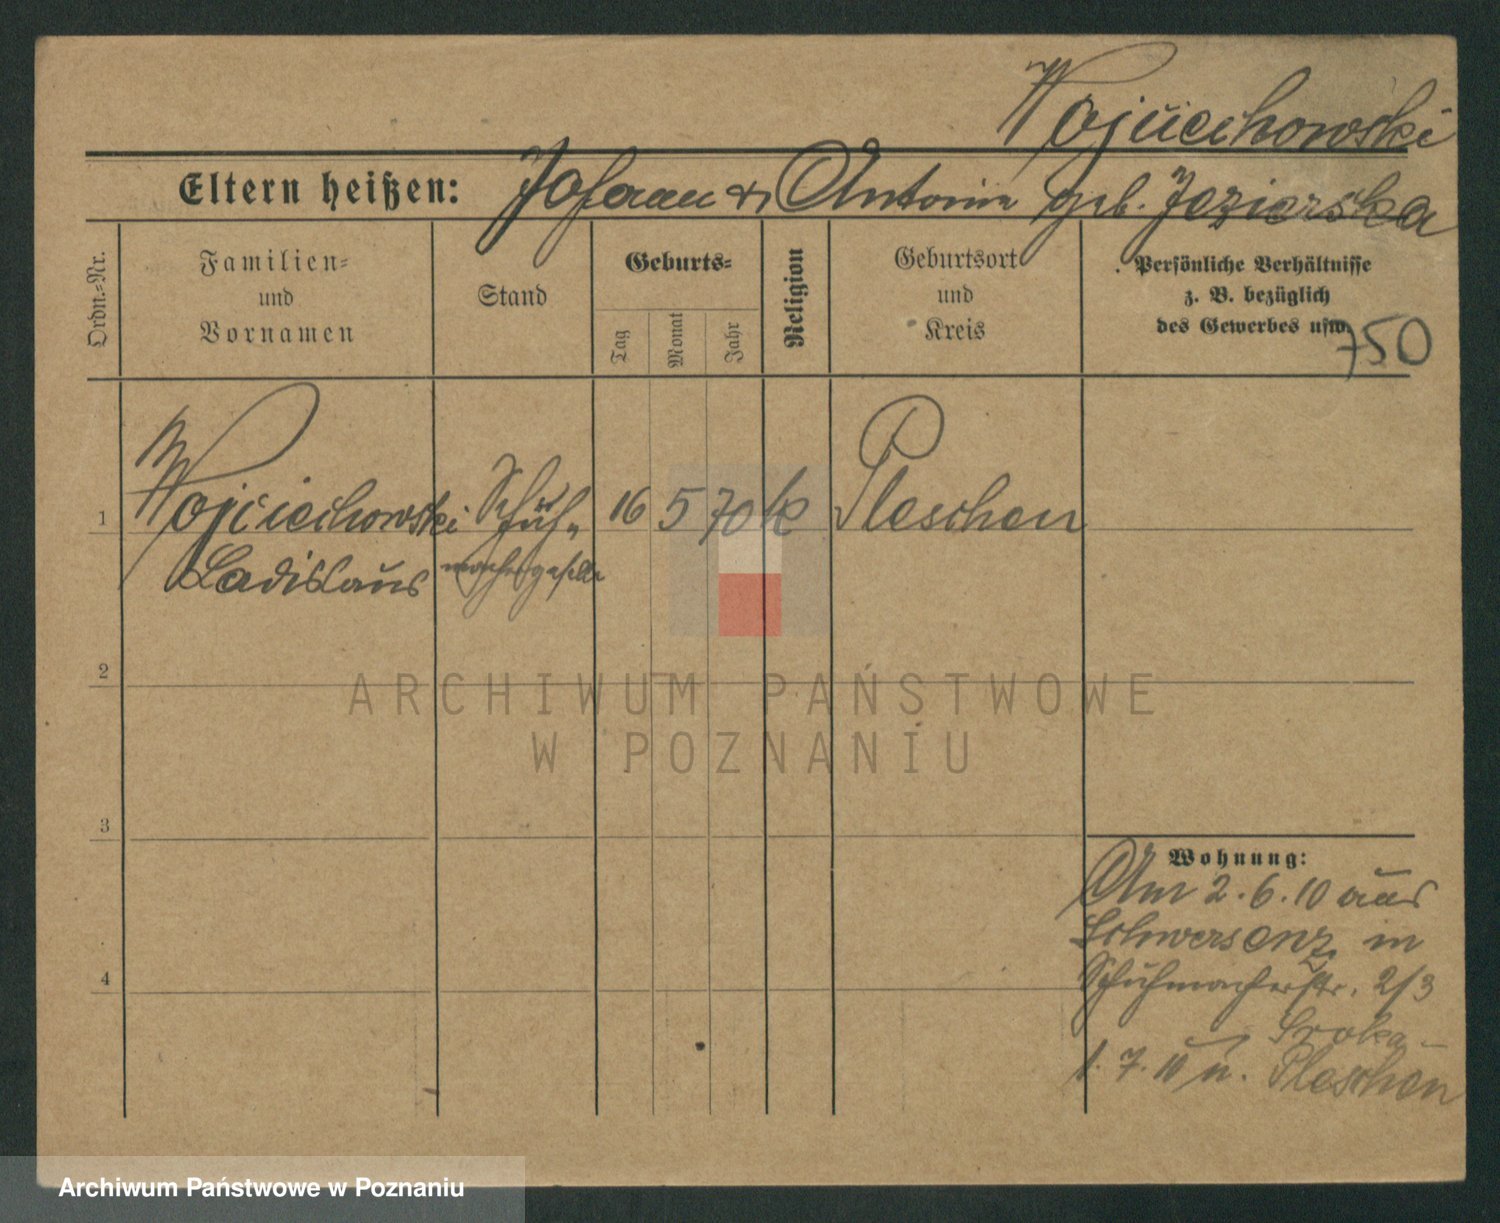 Wojciechowski
Eltern heißen: Johann & Antonie geb. Jezierska
Ordn.-Nr.
Familien-
und
Vornamen
Stand
Geburts-
Tag
Monat
Jahr
Religion
Geburtsort
und
Kreis
Persönliche Verhältnisse
z. B. bezüglich
des Gewerbes usw.
750
1 Wojciechowski Schuh- 16 5 70 k Pleschen
Ladislaus machergeselle
2
3
4
Wohnung:
Am 2.6.10 aus
Schwersenz in
Schuhmacherstr. 2/3
Sroka
1.7.10 n. Pleschen
ARCHIWUM PAŃSTWOWE
W POZNANIU
Archiwum Państwowe w Poznaniu